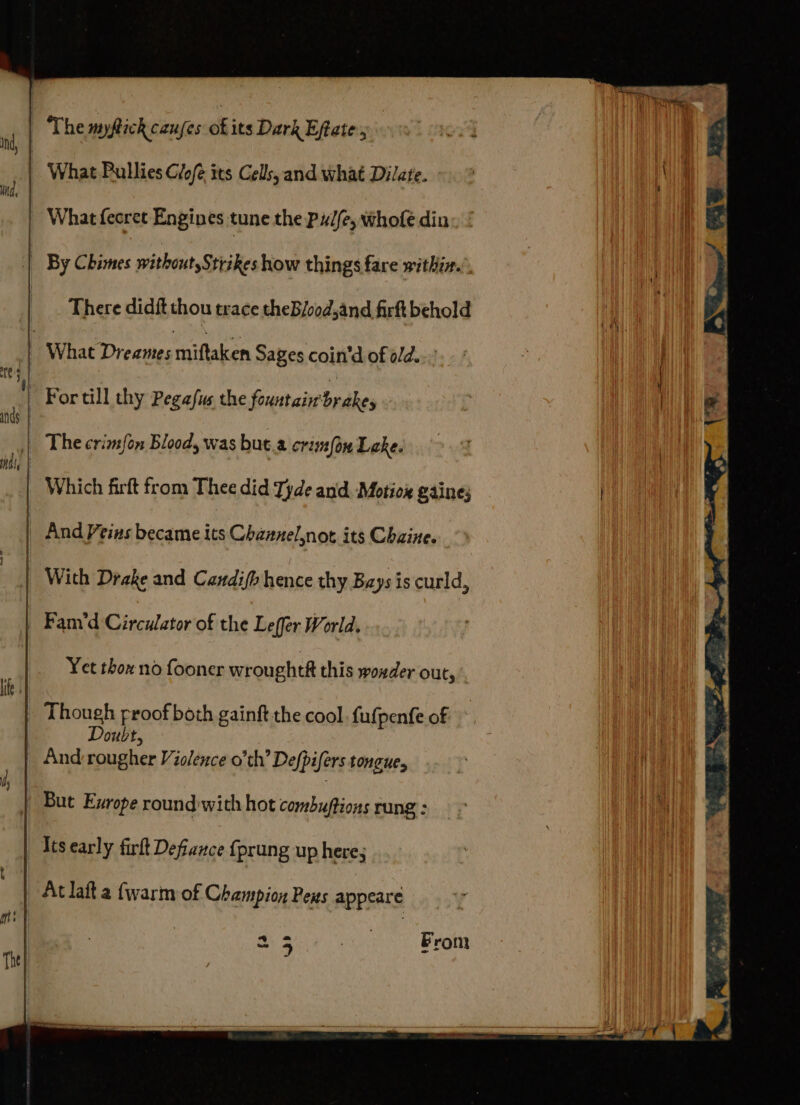 The myſtick cauſes of its Dark Eſtate,
What Pullies Cloſe its Cells, and what Dilate.
What ſecret Engines tune the Pulſe, whoſe din
By Chimes without, Strikes how things fare within.
There didſt thou trace the Blood, and firſt behold
What Dreames miſtaken Sages coin'd of old.
For till thy Pegaſus the fountain brake,
The crimſon Blood, was but a crimſon Lake.
Which firſt from Thee did Tyde and Motion gaine;
And Veins became its Channel, not its Chaine.
With Drake and Candiſh hence thy Bays is curld,
Fam'd Circulator of the Leſſer World.
Yet thou no ſooner wroughtſt this wonder out,
Though proof both gainſt the cool ſuſpenſe of
Doubt,
And rougher Violence o'th' Deſpiſers tongue,
But Europe round with hot combuſtions rung:
Its early firſt Defiance ſprung up here;
At laſt a ſwarm of Champion Pens appeare
From
ind,
ind,
ere
ands
life
The